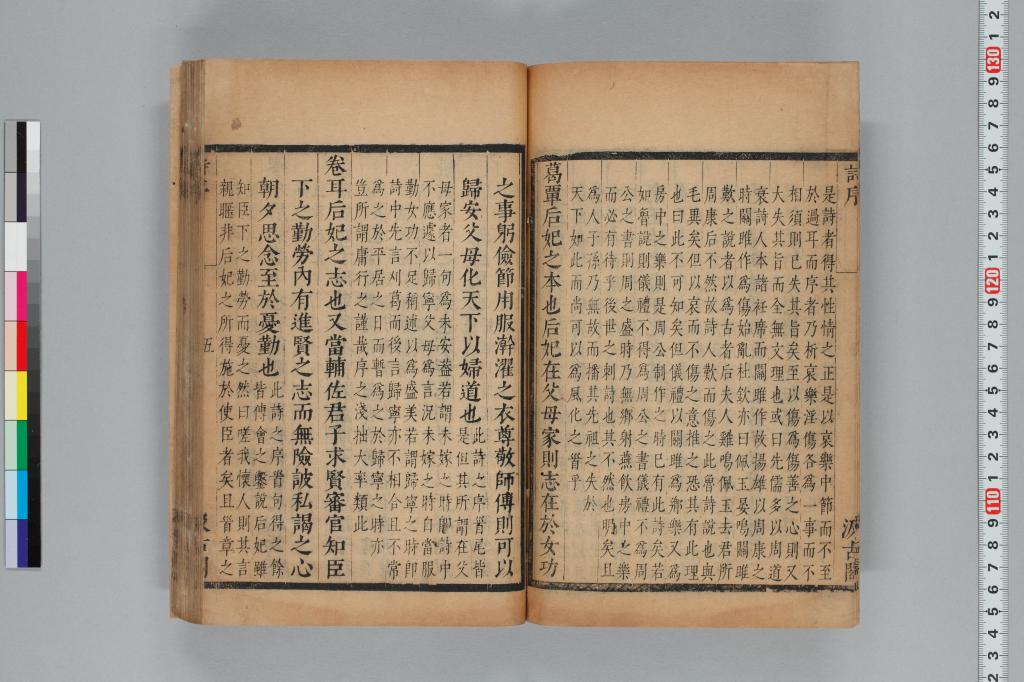 詩序
汲古閣
是詩者得其性情之正是以哀樂中節而不至
於過耳而序者乃析哀樂淫傷各為一事而不
相須則已失其旨矣至以傷為傷善之心則又
大失其旨而全無文理也或曰先儒多以周道
衰詩人本諸衽席而關雎作故揚雄以周康之
時關雎作為傷始亂杜欽亦曰佩玉晏鳴關雎
歎之說者以為古者后夫人雞鳴佩玉去君所
周康后不然故詩人歎而傷之此魯詩說也與
毛異矣但以哀而不傷之意推之恐其有此理
也曰此不可知矣但儀禮以關雎為鄉樂又為
房中之樂則是周公制作之時已有此詩矣若
如魯說則儀禮不得為周公之書儀禮不為周
公之書則周之盛時乃無鄉射燕飲房中之樂
而必有待乎後世之刺詩也其不然也明矣且
為人子孫乃無故而播其先祖之失於
天下如此而尚可以為風化之首乎
葛覃后妃之本也后妃在父母家則志在於女功
之事躬儉節用服澣濯之衣尊敬師傅則可以
歸安父母化天下以婦道也此詩之序首尾皆
是但其所謂在父
母家者一句為未安葢若謂未嫁之時即詩中
不應遽以歸寧父母為言況未嫁之時自當服
勤女功不足稱述以為盛美若謂歸寧之時即
詩中先言刈葛而後言歸寧亦不相合且不常
為之於平居之日而暫為之於歸寧之時亦
豈所謂庸行之謹哉序之淺拙大率類此
卷耳后妃之志也又當輔佐君子求賢審官知臣
下之勤勞內有進賢之志而無險詖私謁之心
朝夕思念至於憂勤也此詩之序首句得之餘
皆傅會之鑿說后妃雖
知臣下之勤勞而憂之然曰嗟我懷人則其言
親暱非后妃之所得施於使臣者矣且首章之
五